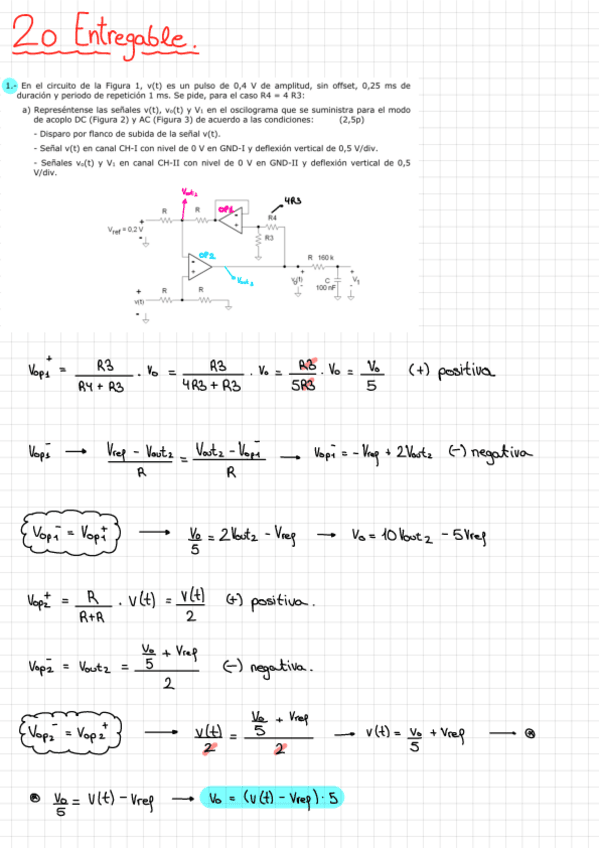 2o Entregable.
1.- En el circuito de la Figura 1, v(t) es un pulso de 0,4 V de amplitud, sin offset, 0,25 ms de
duración y periodo de repetición 1 ms. Se pide, para el caso R4 = 4 R3:
a) Represéntense las señales v(t), v₀(t) y V₁ en el oscilograma que se suministra para el modo
de acoplo DC (Figura 2) y AC (Figura 3) de acuerdo a las condiciones: (2,5p)
- Disparo por flanco de subida de la señal v(t).
- Señal v(t) en canal CH-I con nivel de 0 V en GND-I y deflexión vertical de 0,5 V/div.
- Señales v₀(t) y V₁ en canal CH-II con nivel de 0 V en GND-II y deflexión vertical de 0,5
V/div.
Vout2 4R3
R R OP1 R4
Vref = 0,2 V R3
OP2 R 160 k
+ R R C V₁
v(t) 100 nF
Vop1⁺ = R3 / (R4 + R3) · Vo = R3 / (4R3 + R3) · Vo = R3 / 5R3 · Vo = Vo / 5 (+) positiva
Vop1⁻ → (Vref - Vout2) / R = (Vout2 - Vop1⁻) / R → Vop1⁻ = -Vref + 2Vout2 (-) negativa
Vop1⁻ = Vop1⁺ → Vo / 5 = 2Vout2 - Vref → Vo = 10Vout2 - 5Vref
Vop2⁺ = R / (R+R) · V(t) = V(t) / 2 (+) positiva.
Vop2⁻ = Vout2 = (Vo / 5 + Vref) / 2 (-) negativa.
Vop2⁻ = Vop2⁺ → v(t) / 2 = (Vo / 5 + Vref) / 2 → v(t) = Vo / 5 + Vref → ⊛
⊛ Vo / 5 = V(t) - Vref → Vo = (V(t) - Vref) · 5